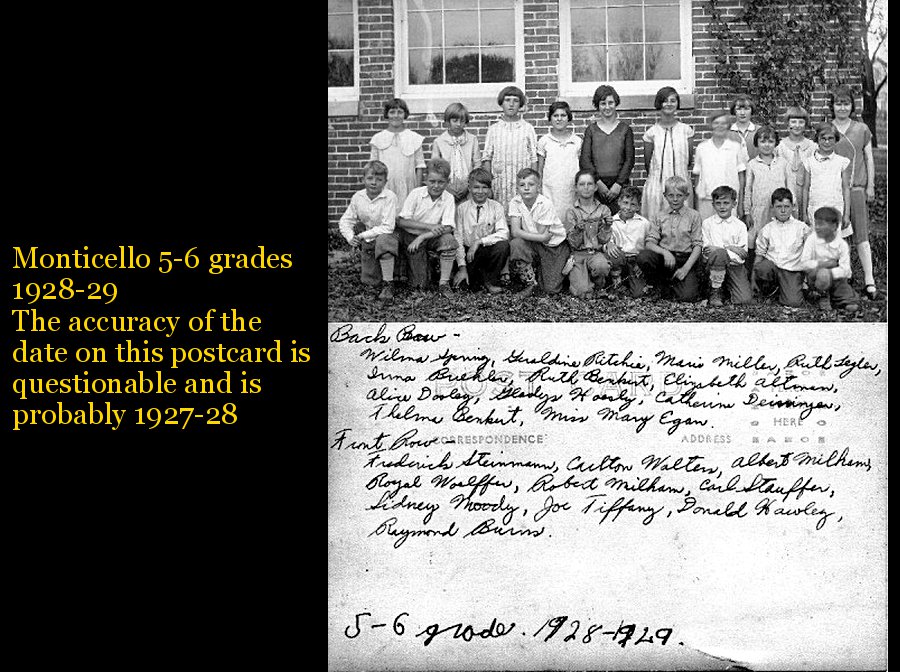 Monticello 5-6 grades
1928-29
The accuracy of the
date on this postcard is
questionable and is
probably 1927-28
Back Row -
Wilma Spring, Geraldine Ritchie, Marie Miller, Ruth Legler,
Irma Buehler, Ruth Benkert, Elizabeth Altman,
Alice Dooley, Gladys Hoesly, Catherine Deininger,
Thelma Benkert, Miss Mary Egan.
HERE
Front Row -
CORRESPONDENCE
ADDRESS
Frederick Steinmann, Carlton Walters, Albert Milham,
Royal Woelffer, Robert Milham, Carl Stauffer,
Sidney Moody, Joe Tiffany, Donald Hawley,
Raymond Burns.
5-6 grade. 1928-1929.